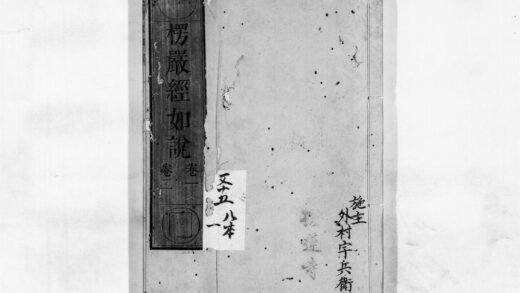 施主
外村宇兵衛
楞嚴經如說
卷一
卷二
八本
一